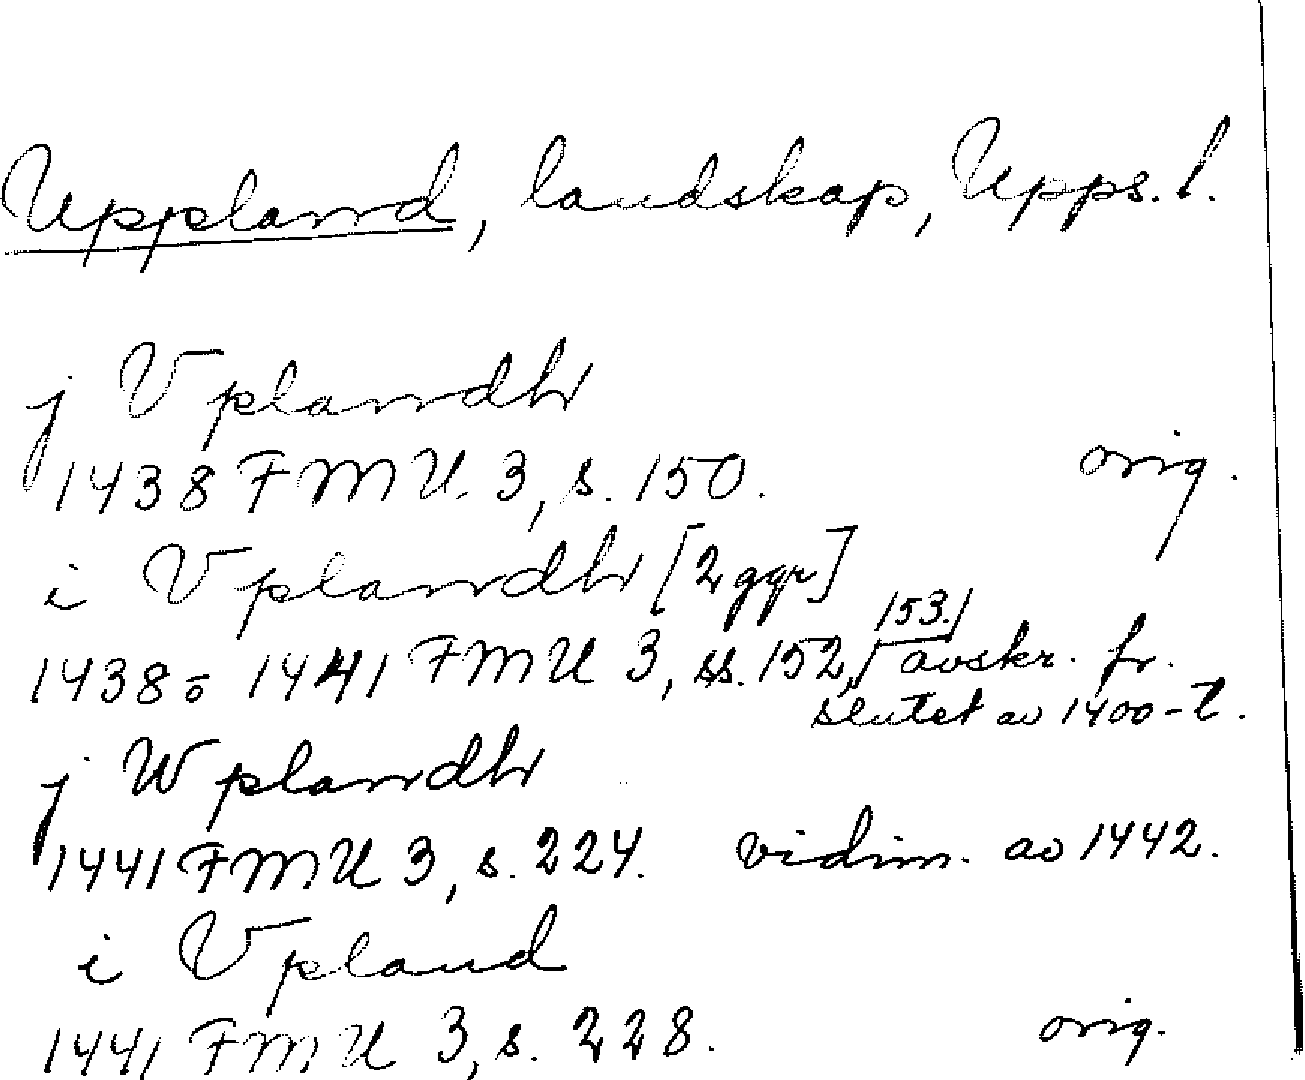 Uppland, landskap, Upps. l.
j Vplandh
1438 FMU. 3, s. 150. orig.
i Vplandh [2 ggr]
1438-1441 FMU 3, ss. 152, 153. avskr. fr.
slutet av 1400-t.
j Wplandh
1441 FMU 3, s. 224. vidim. av 1442.
i Vpland
1441 FMU 3, s. 228. orig.